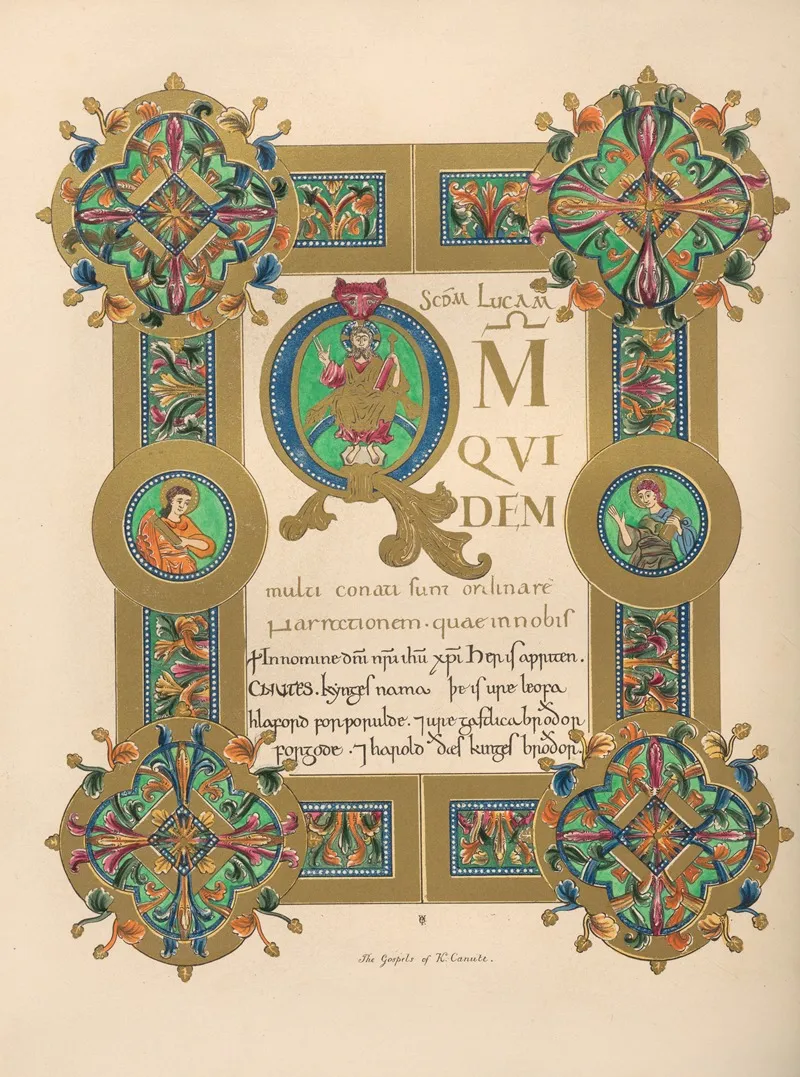 SCDM̄ LUCAM
QM̄
QVI
DEM
multi conati sunt ordinare
Narrationem. quae in nobis
+In nomine dn̄i nr̄i ihū xp̄i Her is aƿriten.
CNUTES. kynges nama þe is ure leofa
hlaford for ƿorulde. ⁊ ure gastlica broðor
for gode. ⁊ harold ðæs kinges broðor.
The Gospels of K. Canute.